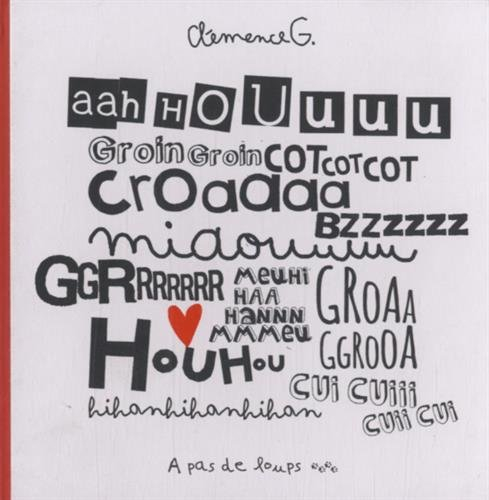 clémence G.
aah HOUuuuu
Groin Groin COT COT COT
croaaaa
BZZZZZZ
miaouuuuu
GGRRRRRRRR
Meuhi
HAA
HANNN
MMMeu
GROAA
GGROOA
HOUHOU
CUi CUiii
CUii CUi
hihanhihanhihan
A pas de loups